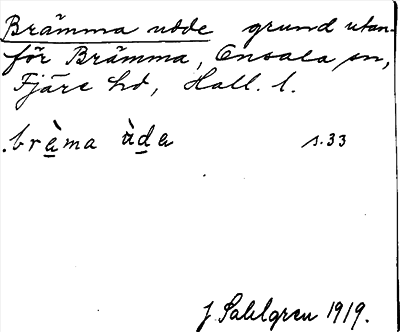 Brämma udde grund utan-
för Brämma, Onsala sn,
Fjäre hd, Hall. l.
.bràma ùda s. 33
J. Sahlgren 1919.